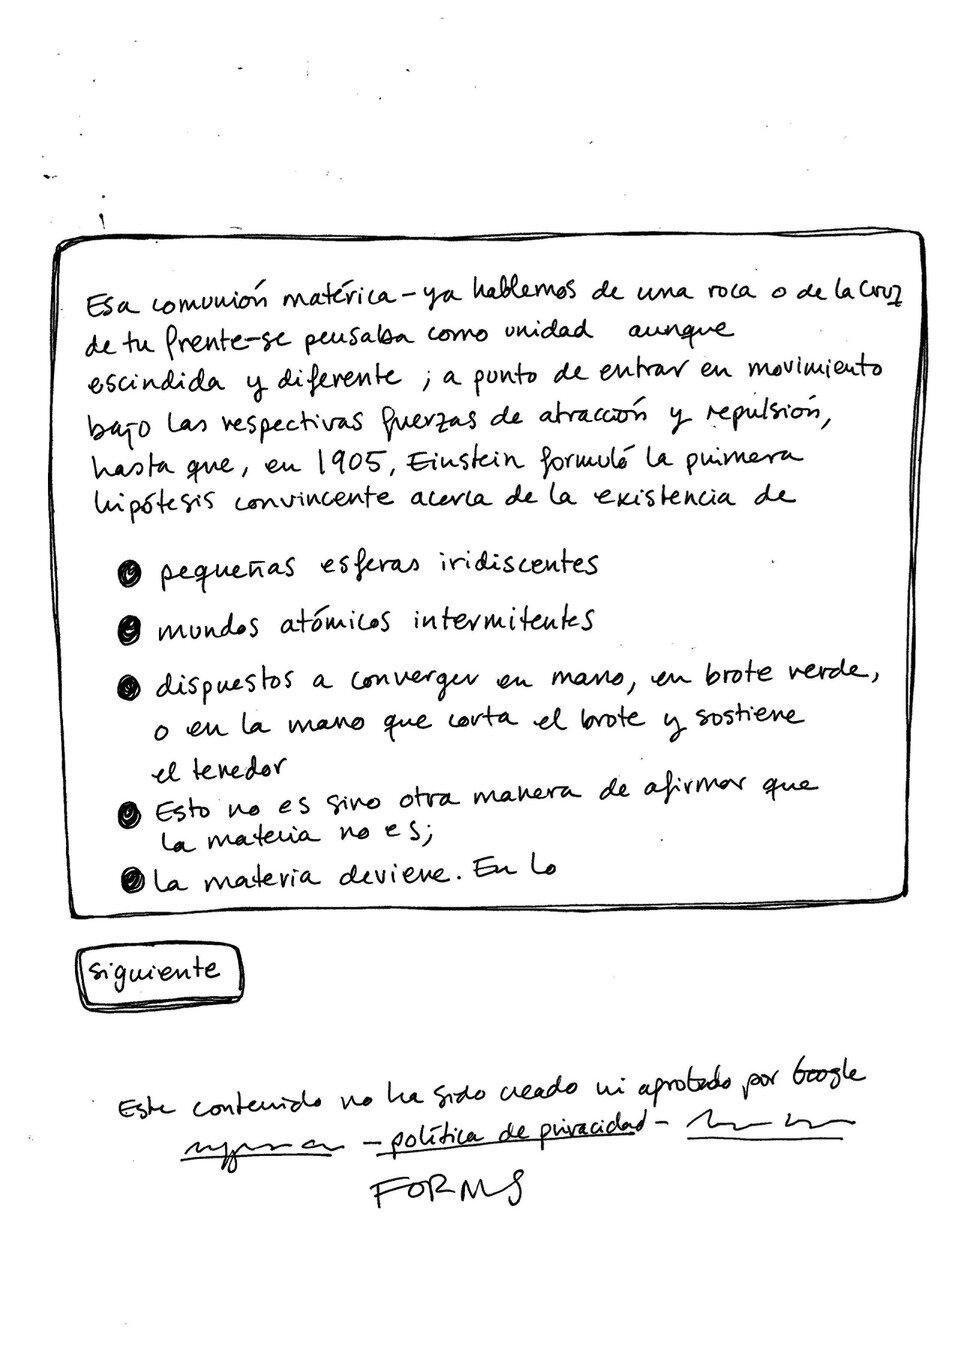 Esa comunión matérica - ya hablemos de una roca o de la cruz
de tu frente - se pensaba como unidad aunque
escindida y diferente ; a punto de entrar en movimiento
bajo las respectivas fuerzas de atracción y repulsión,
hasta que, en 1905, Einstein formuló la primera
hipótesis convincente acerca de la existencia de
● pequeñas esferas iridiscentes
● mundos atómicos intermitentes
● dispuestos a converger en mano, en brote verde,
o en la mano que corta el brote y sostiene
el tenedor
● Esto no es sino otra manera de afirmar que
la materia no es;
● la materia deviene. En lo
siguiente
Este contenido no ha sido creado ni aprobado por Google
- política de privacidad -
FORMS